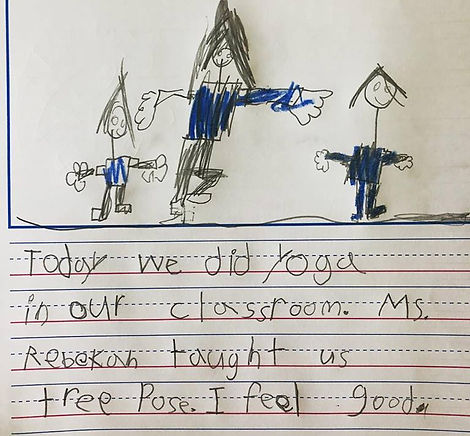 Today we did yoga
in our classroom. Ms.
Rebekah taught us
tree Pose. I feel good.